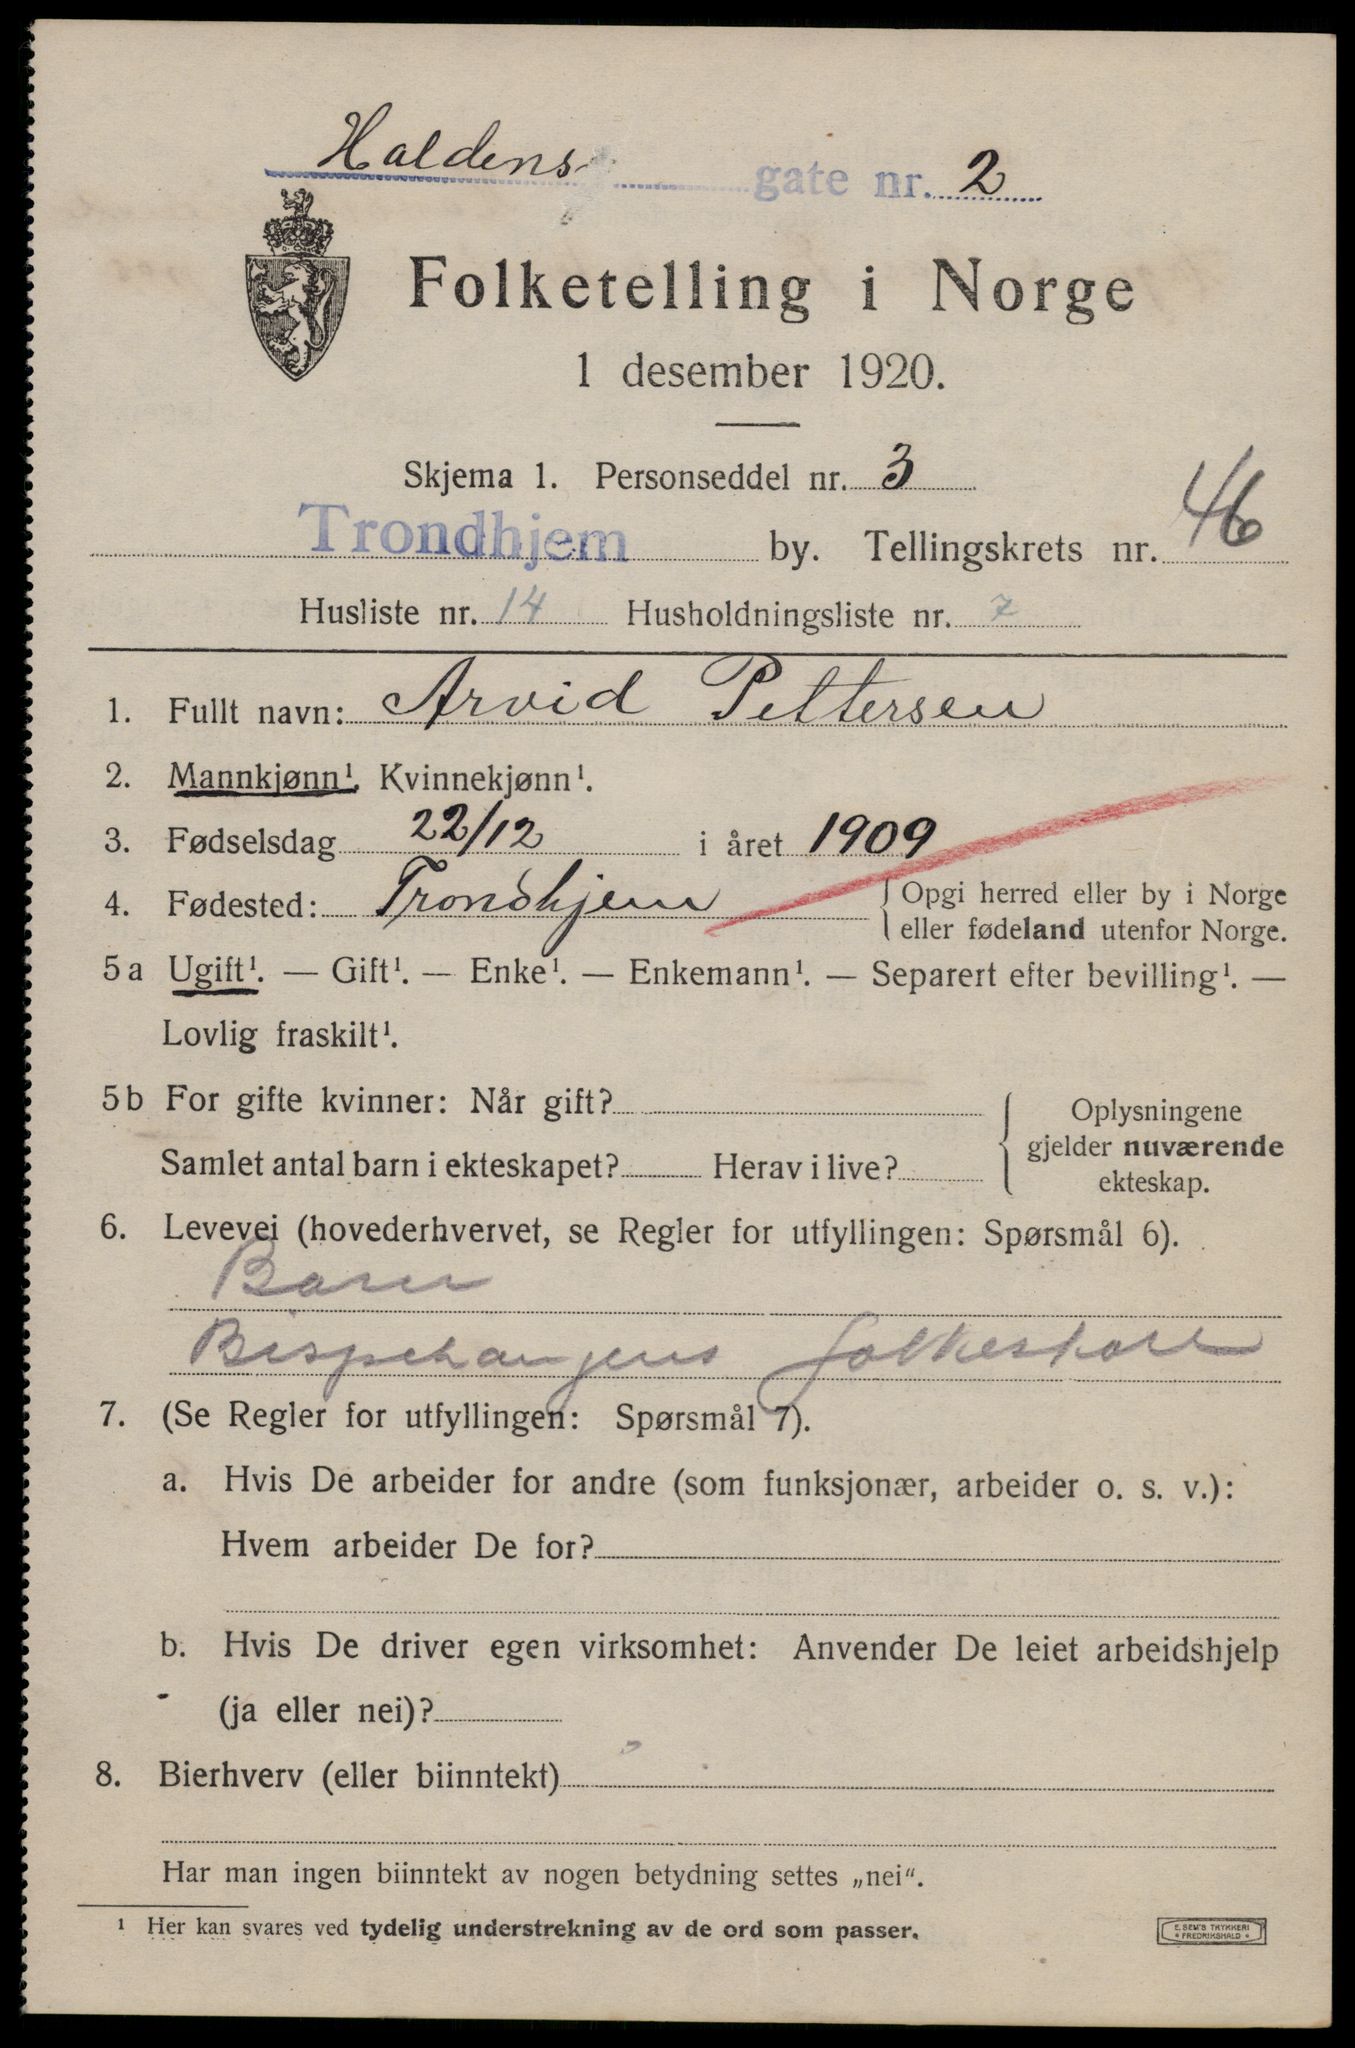 Haldens gate nr. 2
Folketelling i Norge
1 desember 1920.
Skjema 1. Personseddel nr. 3
Trondhjem by. Tellingskrets nr. 46
Husliste nr. 14 Husholdningsliste nr. 7
1. Fullt navn: Arvid Pettersen
2. Mannkjønn¹. Kvinnekjønn¹.
3. Fødselsdag 22/12 i året 1909
4. Fødested: Trondhjem { Opgi herred eller by i Norge
eller fødeland utenfor Norge.
5a Ugift¹. — Gift¹. — Enke¹. — Enkemann¹. — Separert efter bevilling¹. —
Lovlig fraskilt¹.
5b For gifte kvinner: Når gift?
Samlet antal barn i ekteskapet? Herav i live?
Oplysningene
gjelder nuværende
ekteskap.
6. Levevei (hovederhvervet, se Regler for utfyllingen: Spørsmål 6).
Barn
Bispehaugens folkeskole
7. (Se Regler for utfyllingen: Spørsmål 7).
a. Hvis De arbeider for andre (som funksjonær, arbeider o. s. v.):
Hvem arbeider De for?
b. Hvis De driver egen virksomhet: Anvender De leiet arbeidshjelp
(ja eller nei)?
8. Bierhverv (eller biinntekt)
Har man ingen biinntekt av nogen betydning settes „nei“.
¹ Her kan svares ved tydelig understrekning av de ord som passer.
E. SEM'S TRYKKERI
* FREDRIKSHALD *